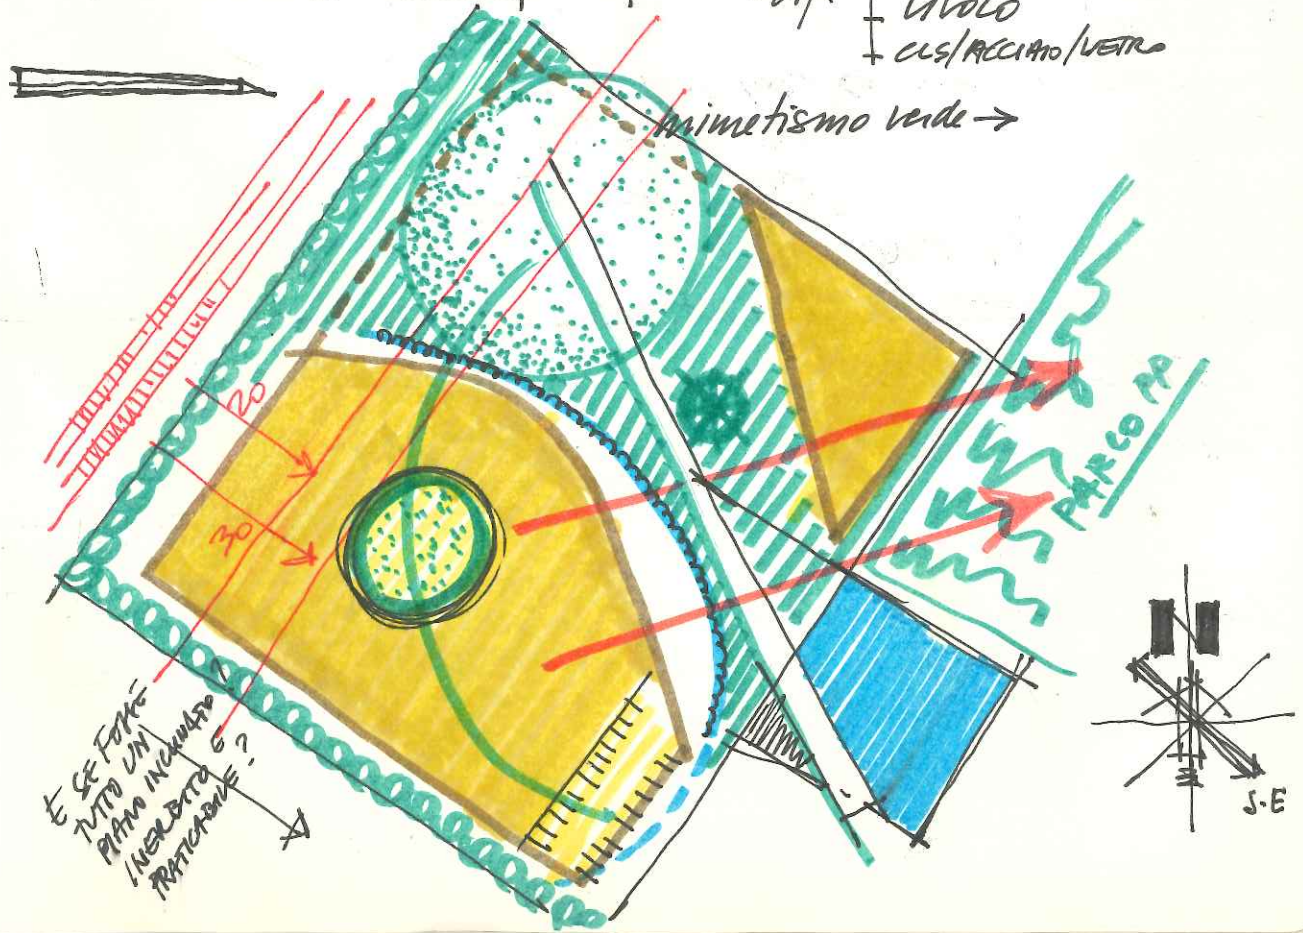 CLS/ACCIAIO/VETRO
mimetismo verde →
20
30
PARCO PP
E SE FOSSE
TUTTO UN
PIANO INCLINATO
INERBITO E
PRATICABILE?
S-E